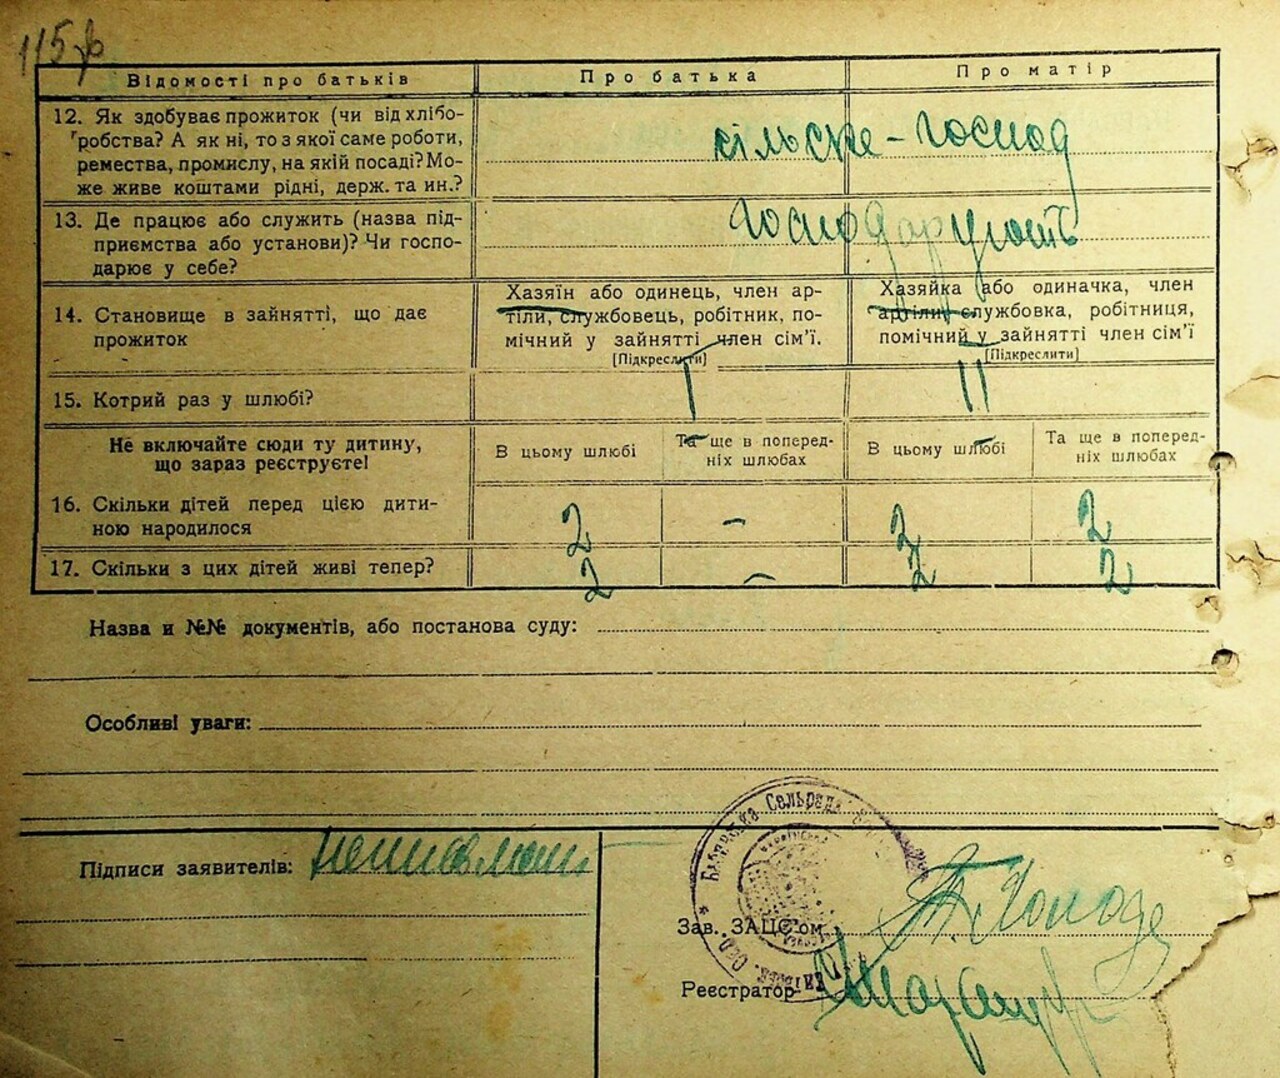 115
Відомості про батьків
Про батька
Про матір
12. Як здобуває прожиток (чи від хлібо-
робства? А як ні, то з якої саме роботи,
ремества, промислу, на якій посаді? Мо-
же живе коштами рідні, держ. та ин.?
сільське-господ
13. Де працює або служить (назва під-
приємства або установи)? Чи госпо-
дарює у себе?
господарують
14. Становище в зайнятті, що дає
прожиток
Хазяїн або одинець, член ар-
тіли, службовець, робітник, по-
мічний у зайнятті член сім'ї.
[Підкреслити]
Хазяйка або одиначка, член
артіли, службовка, робітниця,
помічний у зайнятті член сім'ї
[Підкреслити]
15. Котрий раз у шлюбі?
I
II
Не включайте сюди ту дитину,
що зараз реєструєте!
В цьому шлюбі
Та ще в поперед-
ніх шлюбах
В цьому шлюбі
Та ще в поперед-
ніх шлюбах
16. Скільки дітей перед цією дити-
ною народилося
2
-
2
2
17. Скільки з цих дітей живі тепер?
2
-
2
2
Назва и №№ документів, або постанова суду:
Особливі уваги:
Підписи заявителів:
Сельрада
Зав. ЗАЦС'ом
Реєстратор